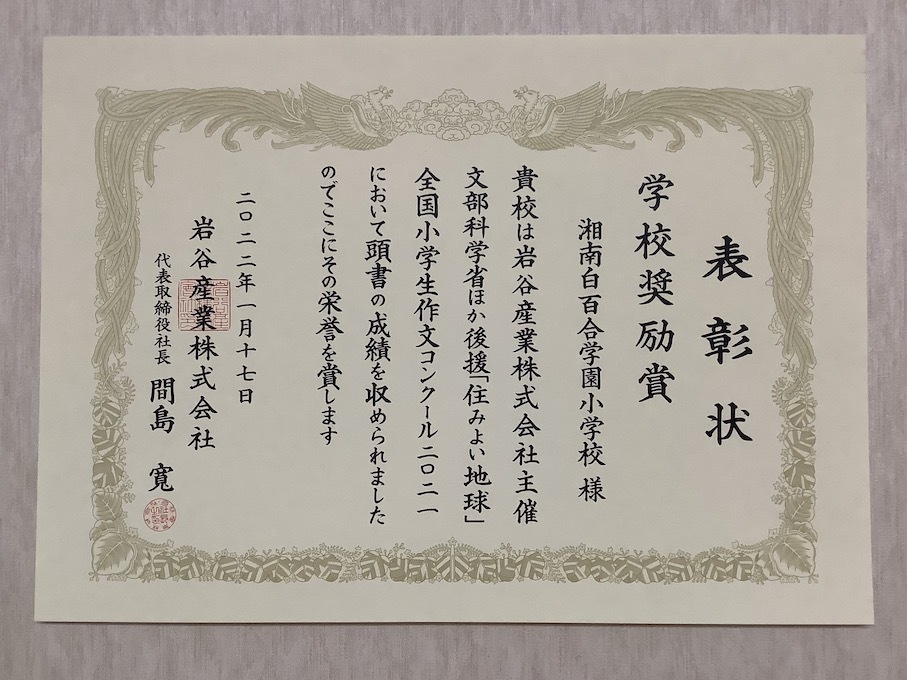 表彰状
学校奨励賞
湘南白百合学園小学校 様
貴校は岩谷産業株式会社主催
文部科学省ほか後援「住みよい地球」
全国小学生作文コンクール二〇二一
において頭書の成績を収められました
のでここにその栄誉を賞します
二〇二二年一月十七日
岩谷産業株式会社
代表取締役社長 間島 寛